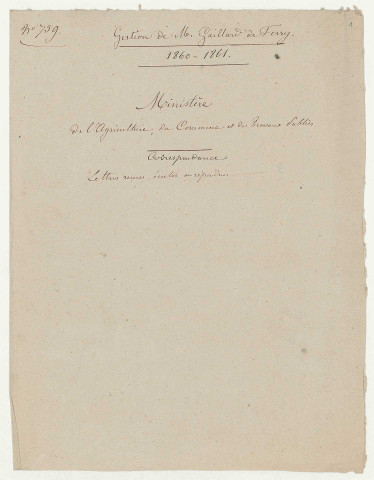 N° 759
Gestion de M. Gaillard de Ferry.
1860-1861.
Ministère
de l'Agriculture, du Commerce et des Travaux Publics
Correspondance
Lettres reçues